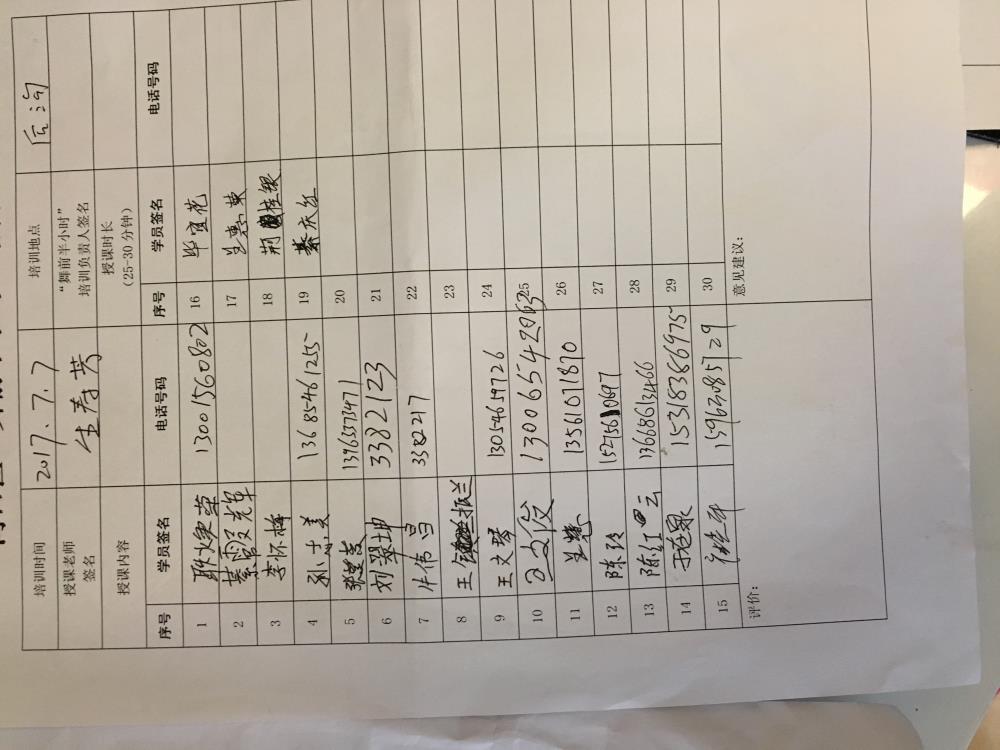 培训时间 2017.7.7 培训地点 后沟
授课老师签名 “舞前半小时”培训负责人签名
授课内容 授课时长（25-30分钟）
序号 学员签名 电话号码 序号 学员签名 电话号码
1 13001560802 16 毕宜花
2 綦霞辉 17 兰惠东
3 李怀梅 18 荆桂银
4 孙小美 13685461255 19 綦庆红
5 13963737471 20
6 刘翠坤 3382123 21
7 牛伟昌 338217 22
8 王振兰 23
9 王文琴 13054659726 24
10 13006542063 25
11 兰慧 13561071870 26
12 陈玲 15215610697 27
13 陈红云 13668613466 28
14 15318366975 29
15 15963085729 30
评价： 意见建议：